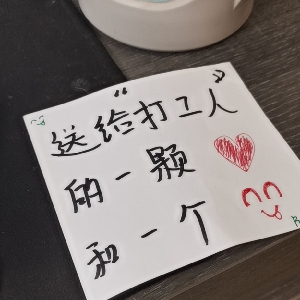 送给“打工人”
的一颗
和一个